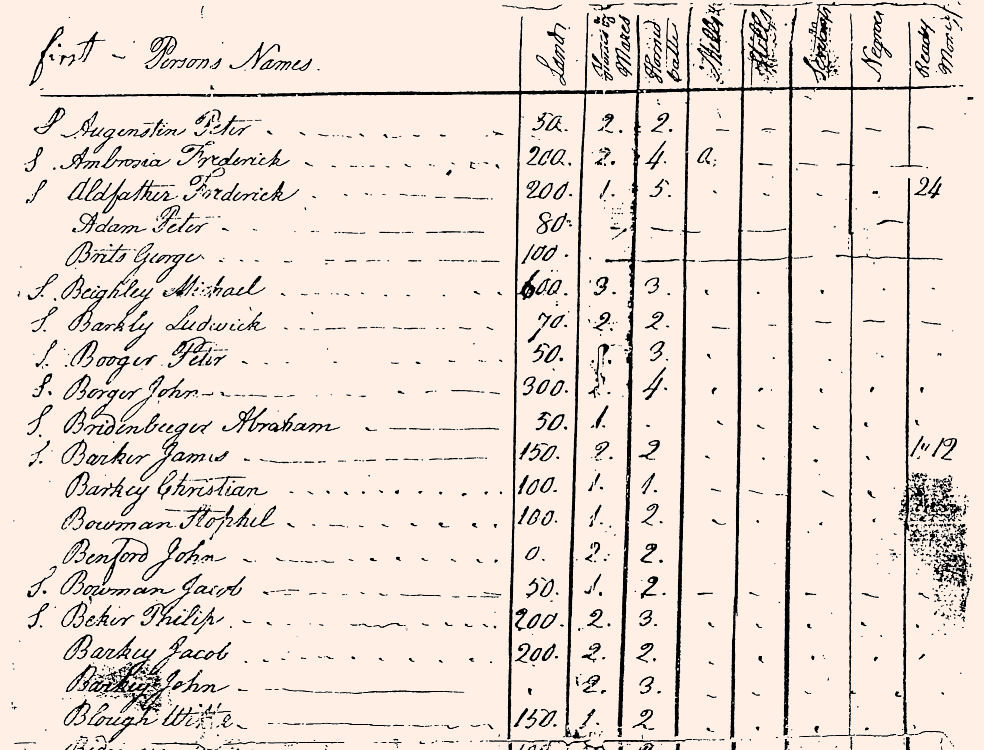 first - Persons Names. Land Horses & Mares Horned Cattle Mills Stills Negroes Ready Money
S Augenstin Peter 50. 2. 2.
S. Ambrosia Frederick 200. 2. 4. 0.
S Aldfather Frederick 200. 1. 5. 24
Adam Peter 80.
Brits George 100.
S. Beighley Michael 600. 3. 3.
S. Barkly Ludwick 70. 2. 2.
S. Booger Peter 50. 3.
S. Borger John 300. 4.
S. Bridenbeeger Abraham 50. 1.
S. Barker James 150. 2. 2 1"12
Barkey Christian 100. 1. 1.
Bowman Stophel 100. 1. 2.
Benford John 0. 2. 2.
S. Bowman Jacob 50. 1. 2.
S. Beker Philip 200. 2. 3.
Barkey Jacob 200. 2. 2.
Barkey John 2. 3.
Blough 150. 1. 2